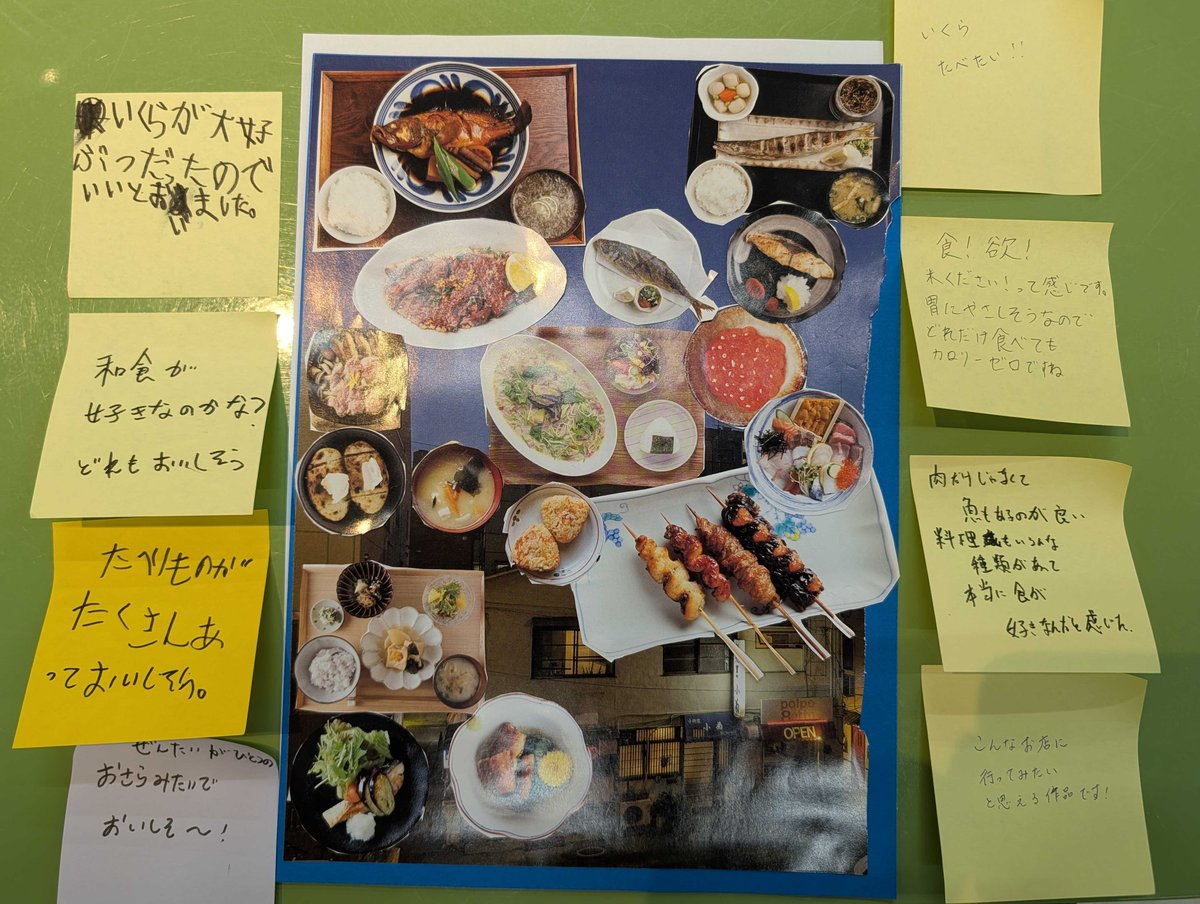 いくらが大好
ぶつだったので
いいとおいました。
和食が
好きなのかな?
どれもおいしそう
たべものが
たくさんあ
っておいしそう。
ぜんたいがひとつの
おさらみたいで
おいしそ〜!
小南
OPEN
いくら
たべたい!!
食!欲!
米ください!って感じです。
胃にやさしそうなので
どれだけ食べても
カロリーゼロですね
肉だけじゃなくて
魚も好のが良い
料理もいろんな
種類があって
本当に食が
好きなんだと感じた
こんなお店に
行ってみたい
と思える作品です!